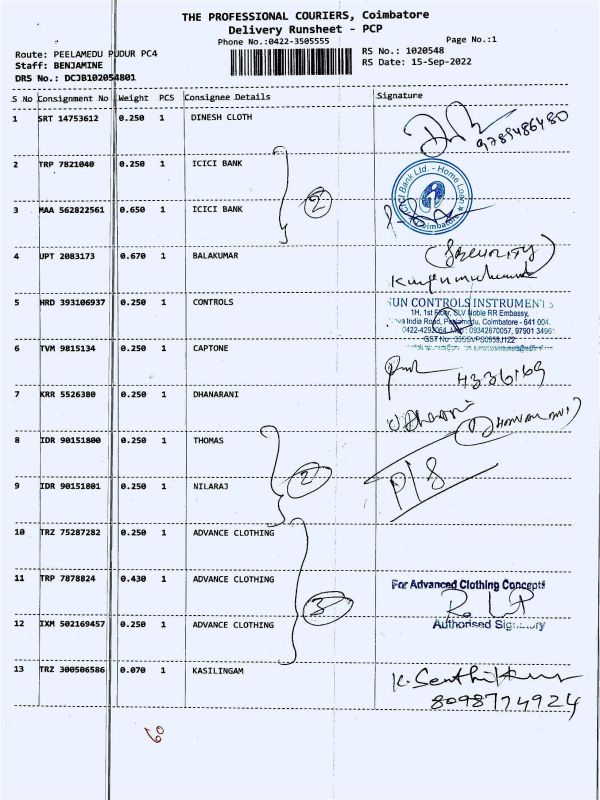 THE PROFESSIONAL COURIERS, Coimbatore
Delivery Runsheet - PCP
Phone No.:0422-3505555
Page No.:1
Route: PEELAMEDU PUDUR PC4
RS No.: 1020548
Staff: BENJAMINE
RS Date: 15-Sep-2022
DRS No.: DCJB102054801
S No Consignment No Weight PCS Consignee Details Signature
1 SRT 14753612 0.250 1 DINESH CLOTH
9789486480
2 TRP 7821040 0.250 1 ICICI BANK
ICICI Bank Ltd. - Home Loan
Coimbatore
2
3 MAA 562822561 0.650 1 ICICI BANK
4 UPT 2083173 0.670 1 BALAKUMAR
(SECURITY)
5 HRD 393106937 0.250 1 CONTROLS
SUN CONTROLS INSTRUMENTS
1H, 1st Floor, SLV Noble RR Embassy,
India Road, Peelamedu, Coimbatore - 641 004.
09342870057, 97901
GST No
6 TVM 9815134 0.250 1 CAPTONE
4336169
7 KRR 5526380 0.250 1 DHANARANI
(DHANARANI)
8 IDR 90151800 0.250 1 THOMAS
P/S
2
9 IDR 90151801 0.250 1 NILARAJ
10 TRZ 75287282 0.250 1 ADVANCE CLOTHING
11 TRP 7878824 0.430 1 ADVANCE CLOTHING
For Advanced Clothing Concepts
3
12 IXM 502169457 0.250 1 ADVANCE CLOTHING
Authorised Signatory
13 TRZ 300506586 0.070 1 KASILINGAM
K. Senthilkumar
8098774924